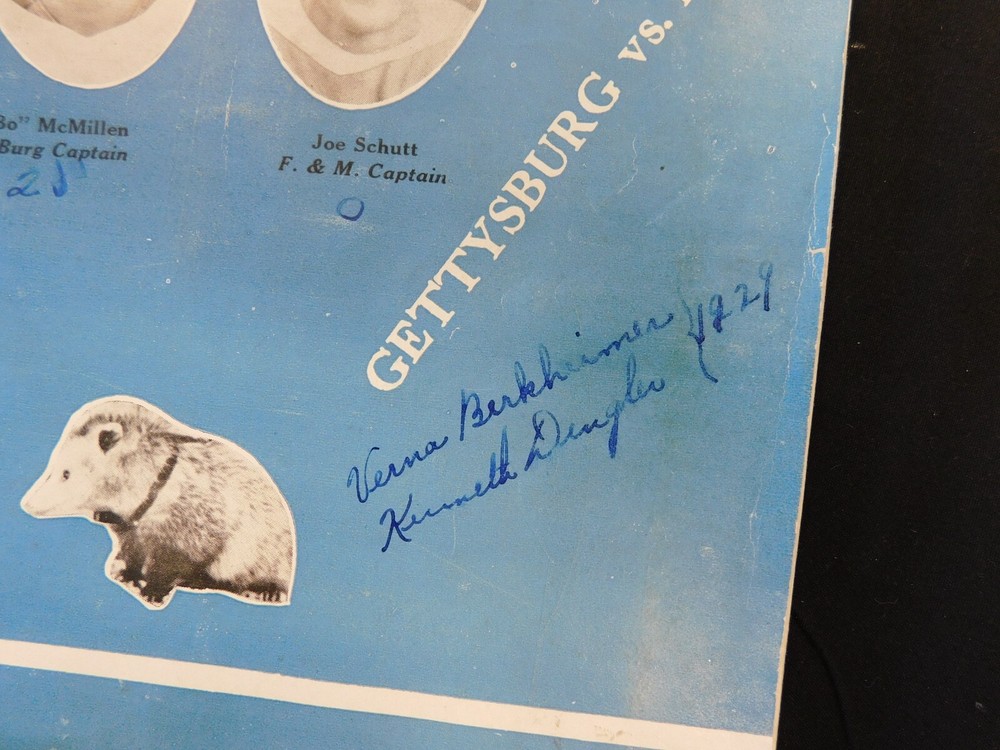 Bo" McMillen
Burg Captain
Joe Schutt
F. & M. Captain
0
GETTYSBURG vs.
Verna Berkheimer
Kenneth Dengler
1929